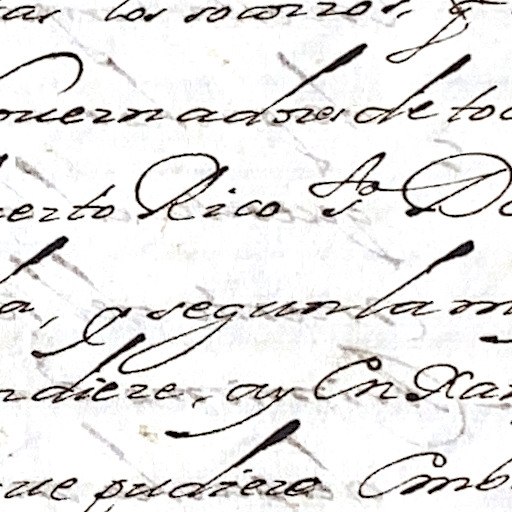 as los socorros, q
overnadores de to
uerto Rico S.to Do
la, y segun la m
ndiere, oy En Xa
que pudiere Emb